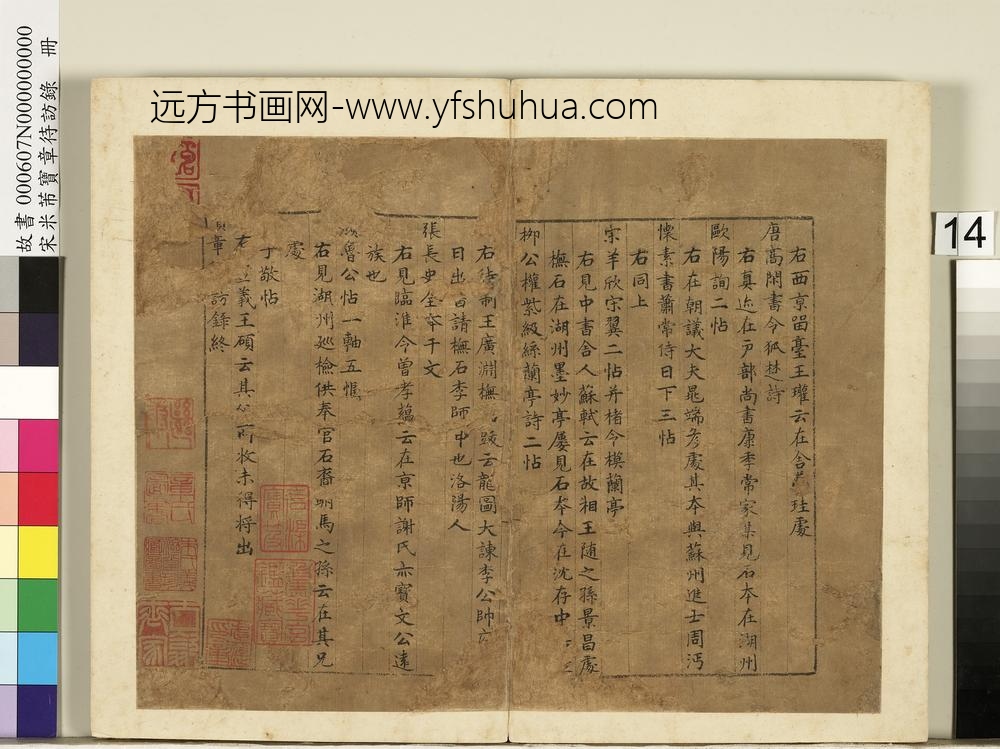 远方书画网-www.yfshuhua.com
故書 000607N000000000
宋米芾寶章待訪錄 冊
14
右西京留臺王瓘云在含珪處
唐高閑書令狐楚詩
右真迹在戸部尚書康季常家集見石本在湖州
歐陽詢二帖
右在朝議大夫晁端彦處其本與蘇州進士周沔
懷素書蕭常侍日下三帖
右同上
宋羊欣宋翼二帖并楮令模蘭亭
右見中書舍人蘇軾云在故相王随之孫景昌處
橅石在湖州墨妙亭屢見石本今在沈存中
柳公權紫絲蘭亭詩二帖
右待制王廣淵橅跋云龍圖大諫李公師
日出請橅石李師中也洛陽人
張長史全本千文
右見臨淮令曾孝蘊云在京師謝氏亦寶文公遠
族也
魯公帖一軸五幅
右見湖州巡檢供奉官石裔駙馬之孫云在其兄
處
子敬帖
右義王碩云其所收未得将出
章訪録終